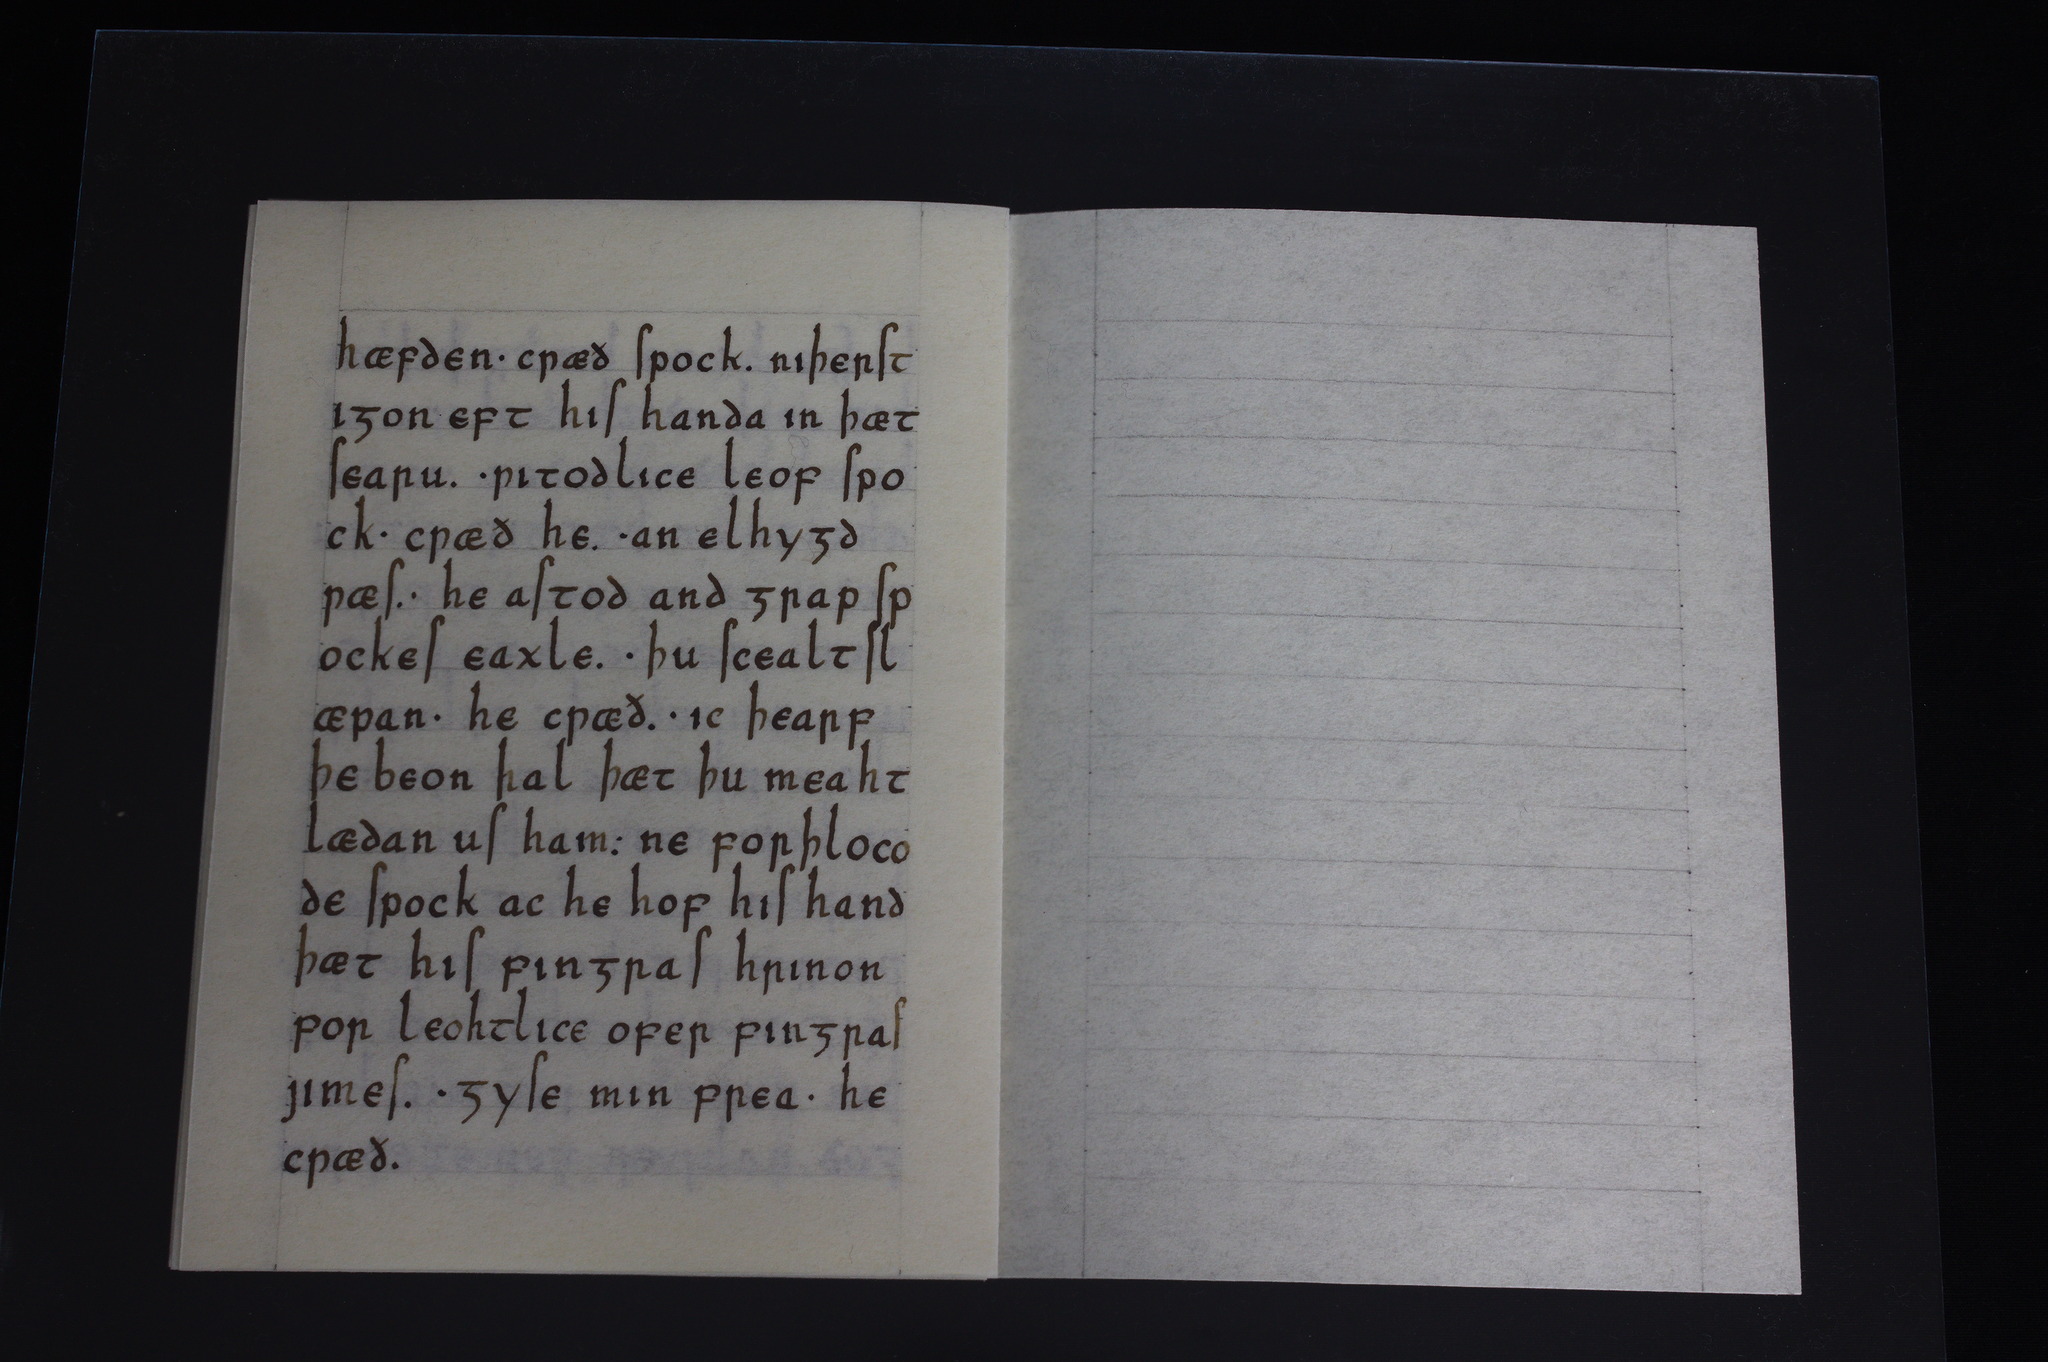 hæfden· cƿæð ſpock. niþerſt
iᵹon eft hiſ handa in þæt
ſearu. ·ƿitodlice leof ſpo
ck· cƿæð he. ·an elhyᵹd
ƿæſ.· he aſtod and ᵹrap ſp
ockeſ eaxle. ·þu ſcealt ſl
æpan· he cƿæð. ·ic þearf
þe beon hal þæt þu meaht
lædan uſ ham: ne forþloco
de ſpock ac he hof hiſ hand
þæt hiſ finᵹraſ hrinon
for leohtlice ofer finᵹraſ
jimeſ. ·ᵹyſe min frea· he
cƿæð.